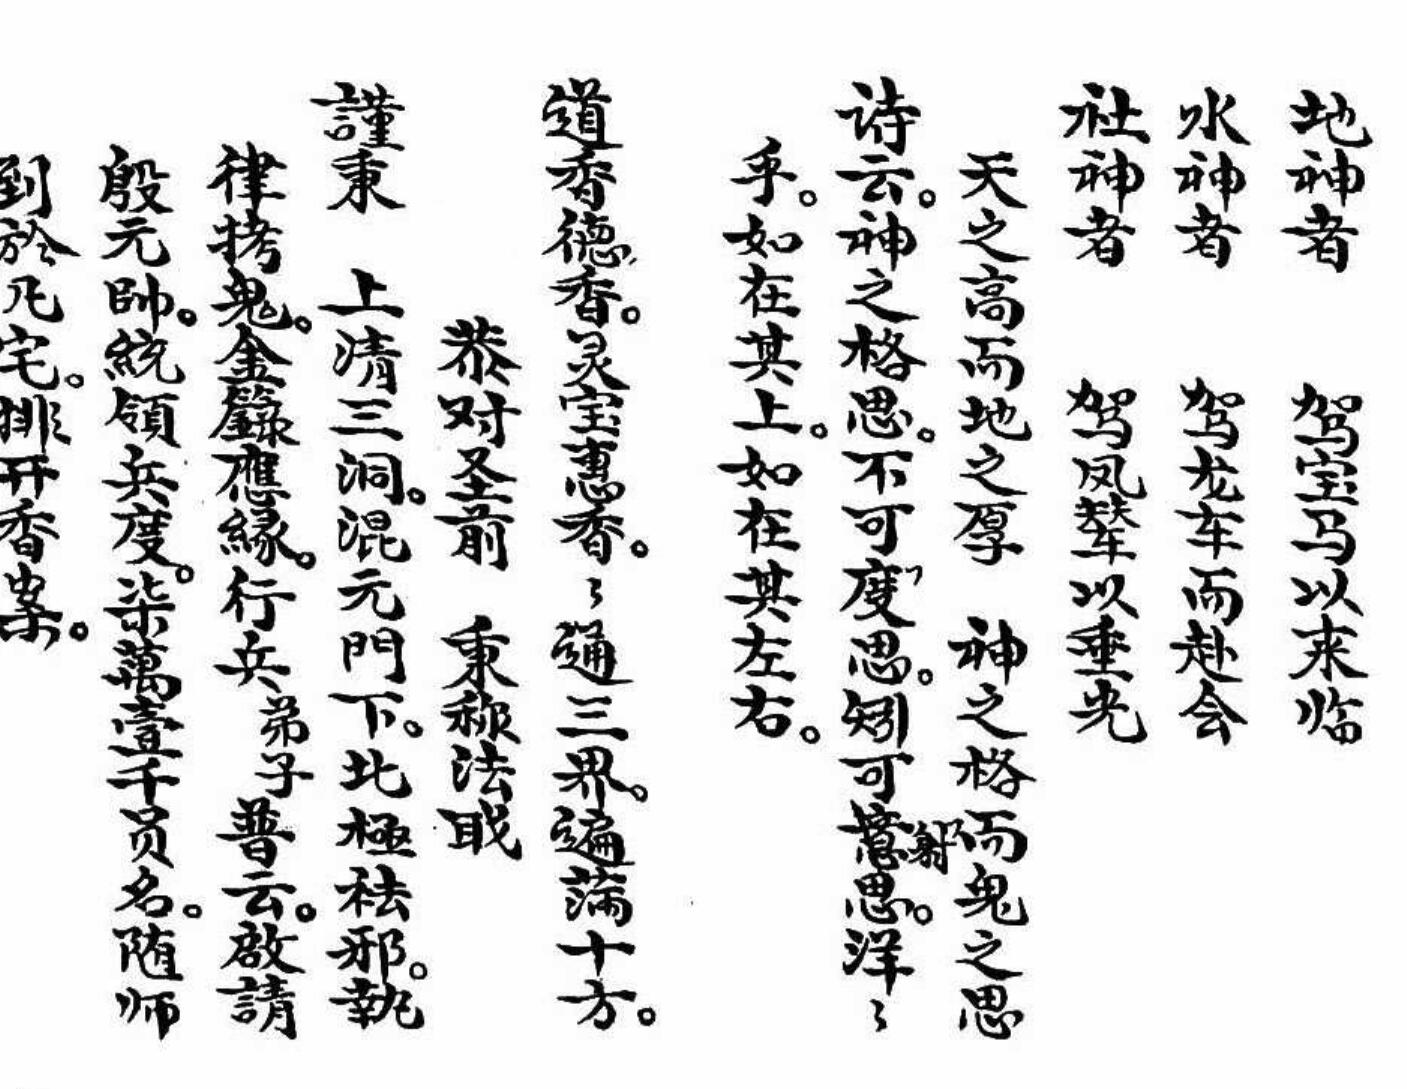 地神者 驾宝马以来临
水神者 驾龙车而赴会
社神者 驾凤辇以垂光
天之高而地之厚 神之格而鬼之思
诗云。神之格思。不可度思。矧可薏射思。洋〻
乎。如在其上。如在其左右。
道香德香。灵宝惠香。〻通三界。遍满十方。
恭对圣前 秉称法职
謹秉 上清三洞。混元門下。北極祛邪。執
律拷鬼。金籙應緣。行兵弟子普云。啟請
殷元帥。統領兵度。柒萬壹千员名。随师
到於凡宅。排开香案。